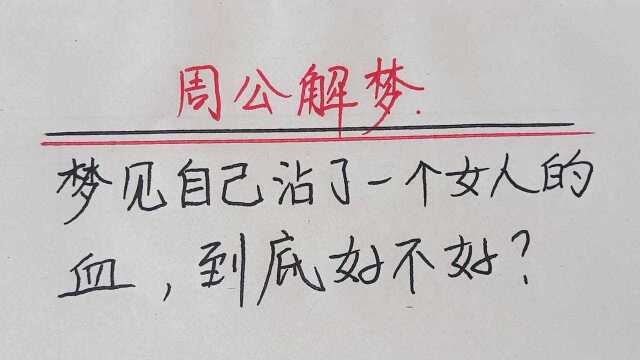 周公解梦.
梦见自己沾了一个女人的
血,到底好不好?